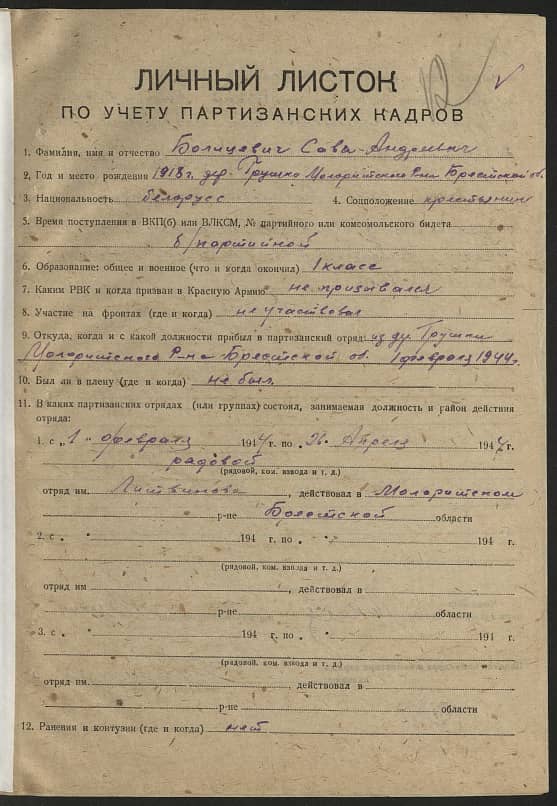 ЛИЧНЫЙ ЛИСТОК
ПО УЧЕТУ ПАРТИЗАНСКИХ КАДРОВ
1. Фамилия, имя и отчество Болицевич Сава Андреевич
2. Год и место рождения 1918 г. дер. Грушка Малоритского Р-на Брестской об.
3. Национальность беларусс 4. Соцположение крестьянин
5. Время поступления в ВКП(б) или ВЛКСМ, № партийного или комсомольского билета
б/партийной
6. Образование: общее и военное (что и когда окончил) 1 класс
7. Каким РВК и когда призван в Красную Армию не призывался
8. Участие на фронтах (где и когда) не участвовал
9. Откуда, когда и с какой должности прибыл в партизанский отряд из д. Грушки
Малоритского Р-на Брестской об. 1 февраля 1944 г.
10. Был ли в плену (где и когда) не был
11. В каких партизанских отрядах (или группах) состоял, занимаемая должность и район действия
отряда:
1. с „1" февраля 1944 г. по Апреля 1944 г.
рядовой
(рядовой, ком. взвода и т. д.)
отряд им. Литвинова, действовал в Малоритском
р-не Брестской области
2. с " 194 г. по " 194 г.
(рядовой, ком. взвода и т. д.)
отряд им , действовал в
р-не области
3. с " 194 г. по " 194 г.
(рядовой, ком. взвода и т. д.)
отряд им. , действовал в
р-не области
12. Ранения и контузии (где и когда) нет